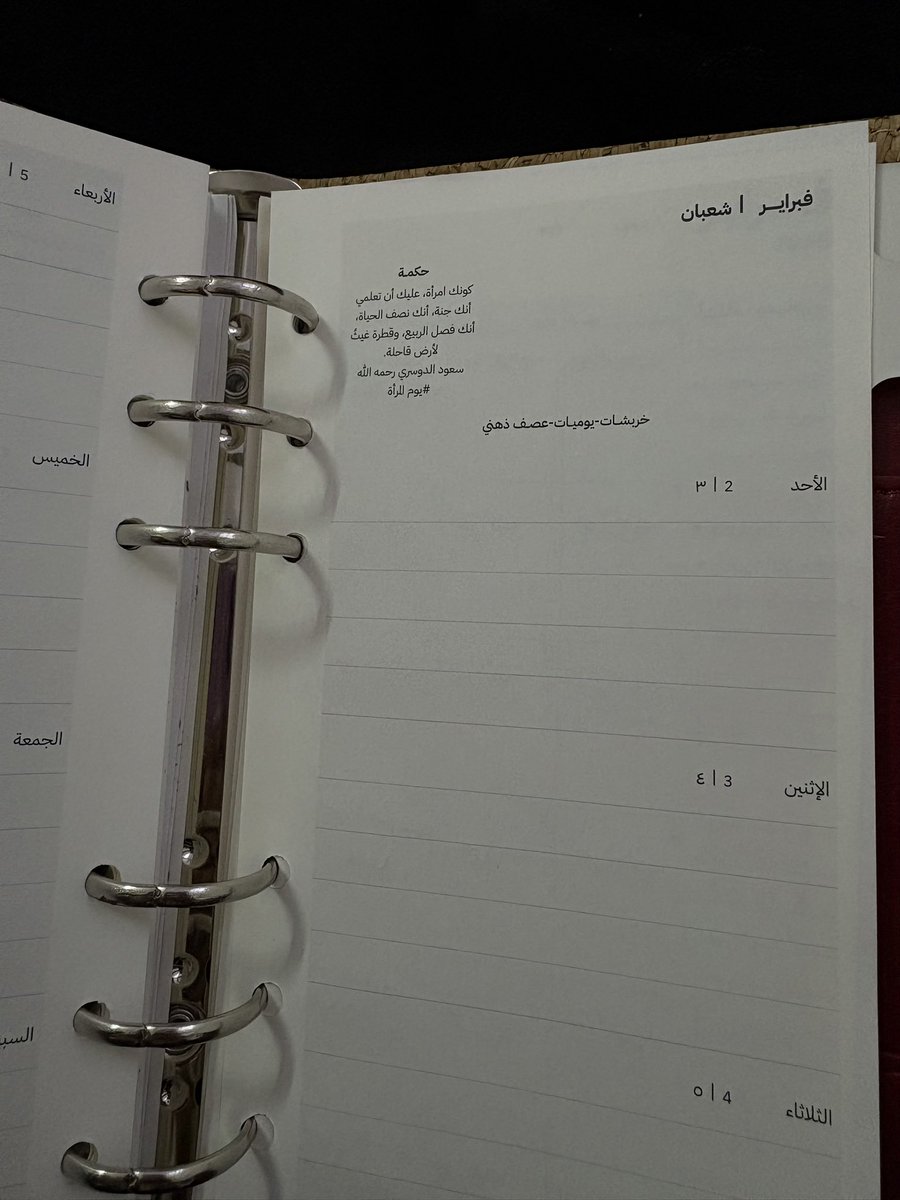 فبراير | شعبان
حكمة
كونك امرأة، عليك أن تعلمي
أنك جنة، أنك نصف الحياة،
أنك فصل الربيع، وقطرة غيثٌ
لأرض قاحلة.
سعود الدوسري رحمه الله
#يوم المرأة
خربشات-يوميات-عصف ذهني
الأحد 2 | ٣
الإثنين 3 | ٤
الثلاثاء 4 | ٥
الأربعاء 5 |
الخميس
الجمعة